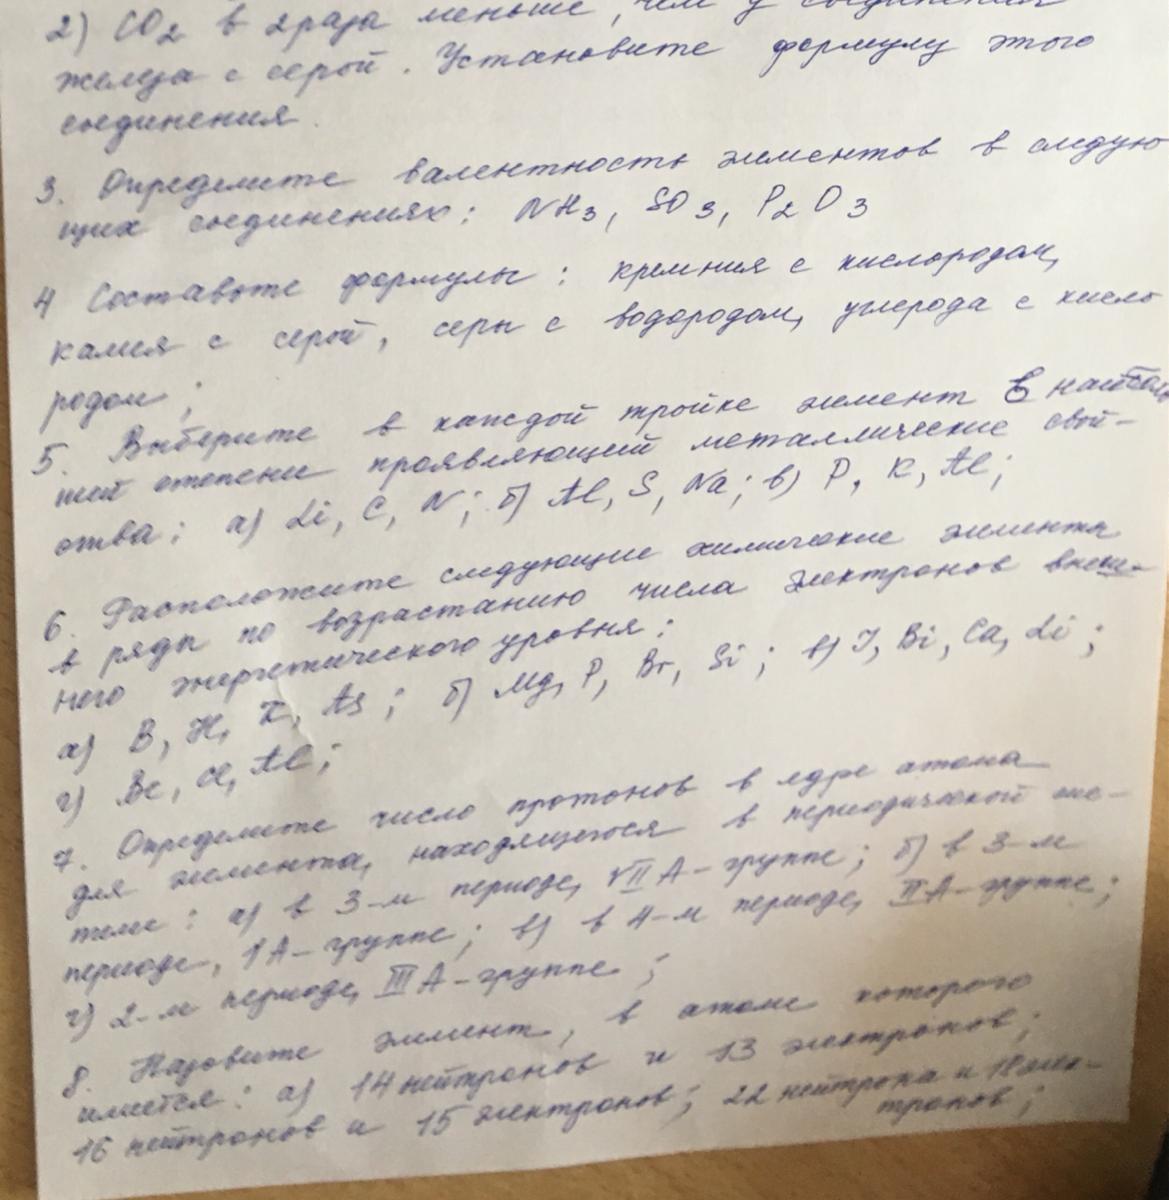 2) CO2 в 2 раза меньше, чем у соединения
железа с серой. Установите формулу этого
соединения.
3. Определите валентность элементов в следую
щих соединениях: NH3, SO3, P2O3
4 Составьте формулы: кремния с кислородом,
калия с серой, серы с водородом, углерода с кисло
родом;
5. Выберите в каждой тройке элемент в наиболь
шей степени проявляющий металлические свой-
ства: а) Li, C, N; б) Al, S, Na; в) P, K, Al;
6. Расположите следующие химические элементы
в ряды по возрастанию числа электронов внеш-
него энергетического уровня:
а) B, H, K, As; б) Mg, P, Br, Si; в) I, Bi, Ca, Li;
г) Be, Cl, Al;
7. Определите число протонов в ядре атома
для элемента, находящегося в периодической сис-
теме: а) в 3-м периоде, VII A-группе; б) в 3-м
периоде, IA-группе; в) в 4-м периоде, II A-группе;
г) 2-м периоде, III A-группе;
8. Назовите элемент, в атоме которого
имеется: а) 14 нейтронов и 13 электронов;
16 нейтронов и 15 электронов; 22 нейтрона и 18 элек-
тронов;